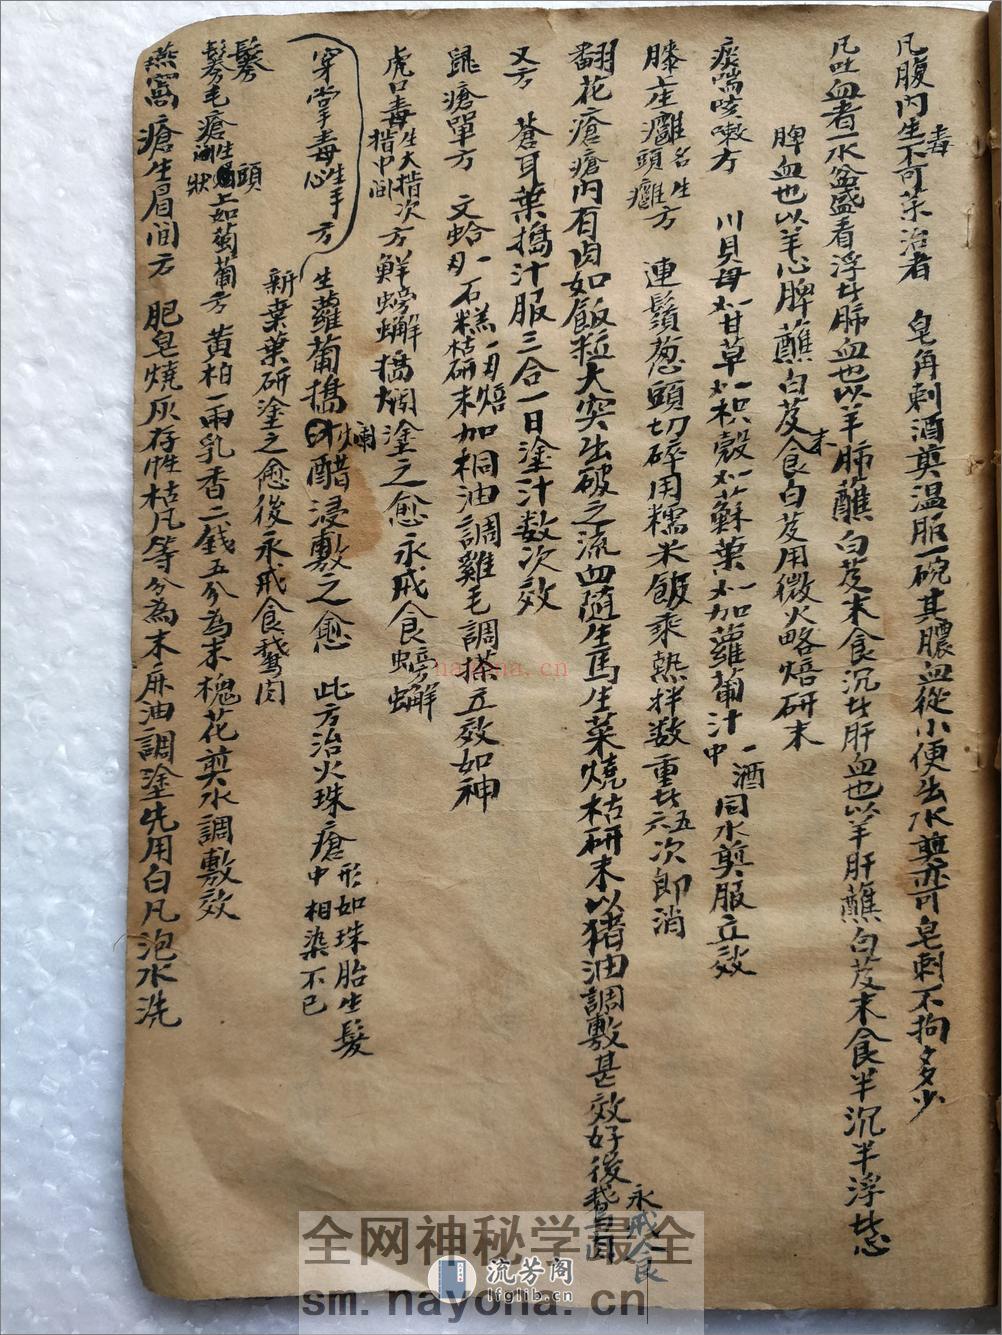 凡腹内生毒不可薬治者　皂角刺酒煎温服一碗其膿血從小便出水煎亦可皂刺不拘多少
凡吐血者一水盆盛看浮者肺血也以羊肺蘸白芨末食沉者肝血也以羊肝蘸白芨末食半沉半浮者心
脾血也以羊心脾蘸白芨末食白芨用微火略焙研末
痰喘咳嗽方　川貝母 甘草 枳殼 蘇葉 加蘿蔔汁一中酒同水煎服立效
膝庄癰名生頭癰方　連鬚葱頭切碎用糯米飯乘熱拌数重者五六次即消
翻花瘡瘡内有肉如飯粒大突出破之流血隨生馬生菜燒枯研末以猪油調敷甚效好後永戒食鵞肉
又方　蒼耳葉搗汁服三合一日塗汁数次效
鼠瘡單方　文蛤 一石糕一 焙枯研末加桐油調雞毛調搽立效如神
虎口毒生大指次指中间方鮮螃蠏搗爛塗之愈永戒食螃蠏
穿掌毒生手心方　生蘿蔔搗爛醋浸敷之愈　此方治火珠瘡形如珠胎生髮中相染不已
新葉葉研塗之愈後永戒食鵞肉
髣髣毛瘡生頭上如葡萄狀方　黄柏一兩乳香二錢五分為末槐花煎水調敷效
燕窩瘡生眉间方　肥皂燒灰存性枯凡等分為末麻油調塗先用白凡泡水洗
全网神秘学最全
流芳阁
lfglib.cn
sm.nayona.cn
nayona.cn